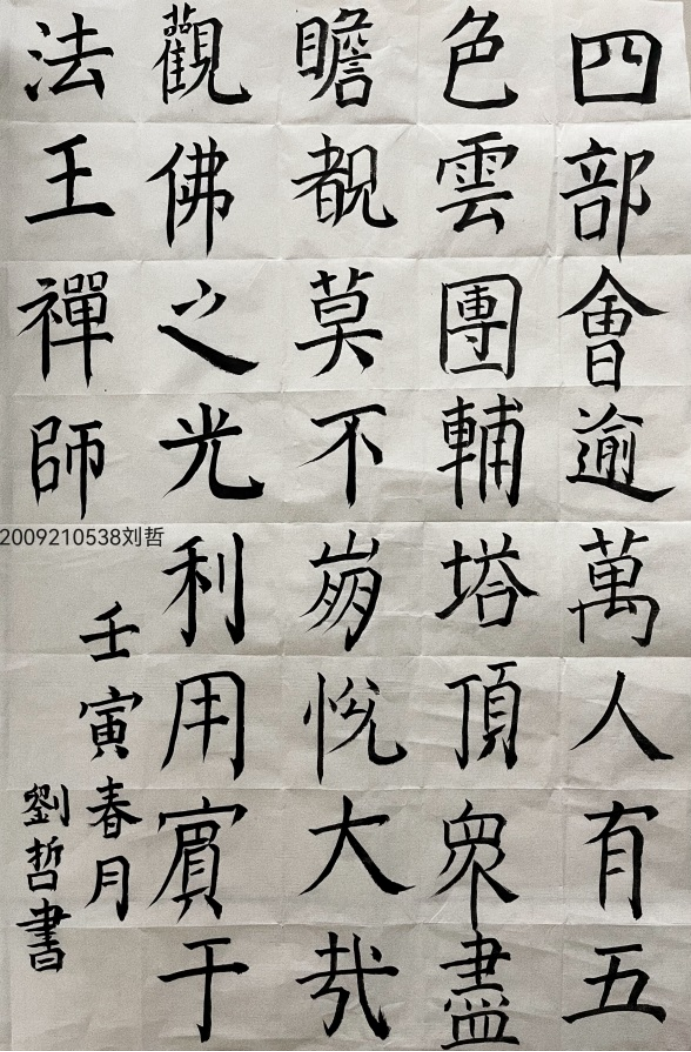 四部會逾萬人有五
色雲團輔塔頂衆盡
瞻覩莫不崩悅大哉
觀佛之光利用賓于
法王禪師
壬寅春月
劉哲書
2009210538刘哲